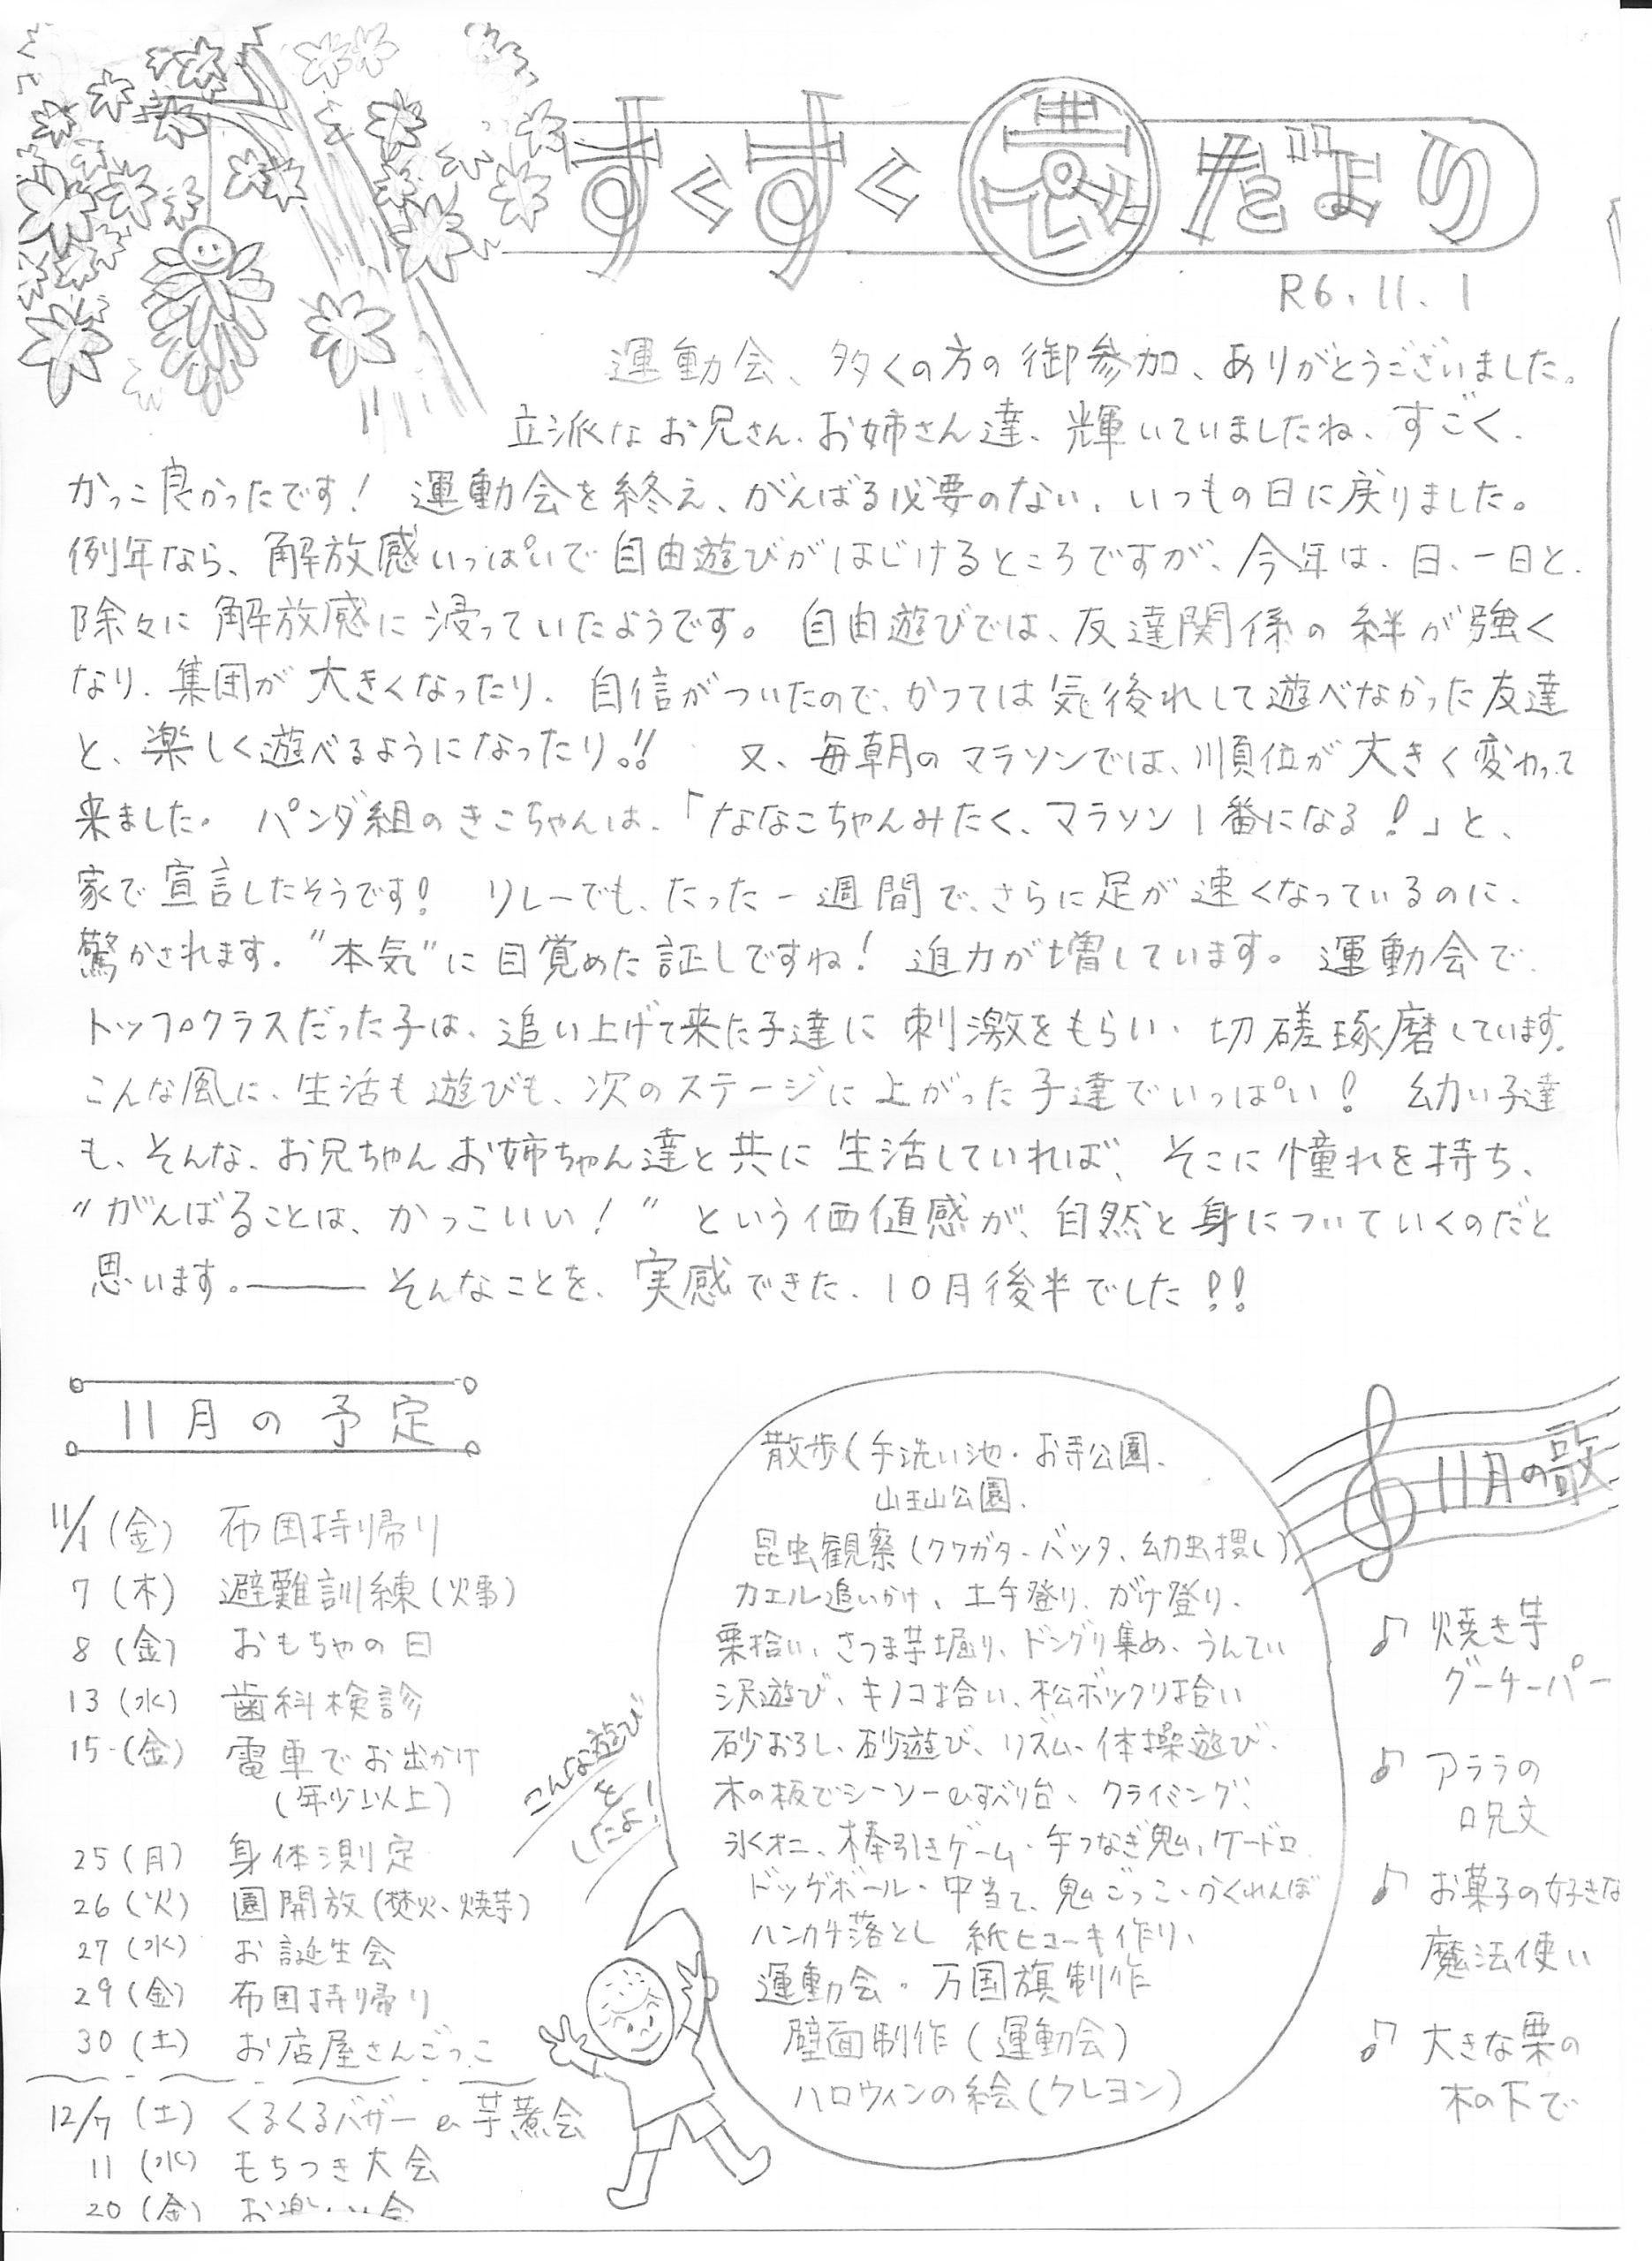 すくすく
だより
R6.11.1
運動会、多くの方の御参加、ありがとうございました。
立派なお兄さん、お姉さん達、輝いていましたね、すごく、
かっこ良かったです! 運動会を終え、がんばる必要のない、いつもの日に戻りました。
例年なら、解放感いっぱいで自由遊びがはじけるところですが、今年は、日、一日と、
除々に解放感に浸っていたようです。 自由遊びでは、友達関係の絆が強く
なり、集団が大きくなったり、自信がついたので、かつては気後れして遊べなかった友達
と、楽しく遊べるようになったり!! 又、毎朝のマラソンでは、順位が大きく変わって
来ました。パンダ組のきこちゃんは、「ななこちゃんみたく、マラソン1番になる!」と、
家で宣言したそうです! リレーでも、たった一週間で、さらに足が速くなっているのに、
驚かされます。"本気"に目覚めた証しですね! 迫力が増しています。運動会で、
トップクラスだった子は、追い上げて来た子達に刺激をもらい、切磋琢磨しています。
こんな風に、生活も遊びも、次のステージに上がった子達でいっぱい! 幼い子達
も、そんな、お兄ちゃん、お姉ちゃん達と共に生活していれば、そこに憧れを持ち、
"がんばることは、かっこいい!"という価値感が、自然と身についていくのだと
思います。――そんなことを、実感できた、10月後半でした!!
11月の予定
11/1(金) 布団持り帰り
7(木) 避難訓練(火事)
8(金) おもちゃの日
13(水) 歯科検診
15(金) 電車でお出かけ
(年少以上)
25(月) 身体測定
26(火) 園開放(焚火、焼芋)
27(水) お誕生会
29(金) 布団持り帰り
30(土) お店屋さんごっこ
12/7(土) くるくるバザー&芋煮会
11(水) もちつき大会
20(金) お楽しみ会
こんな遊び
を
したよ!
散歩(手洗い池・お寺公園、
山王山公園、
昆虫観察(クワガタ、バッタ、幼虫捜し)
カエル追いかけ、土手登り、がけ登り、
栗拾い、さつま芋掘り、ドングリ集め、うんてい
沢遊び、キノコ拾い、松ボックリ拾い
砂おろし、砂遊び、リズム、体操遊び、
木の板でシーソー&すべり台、クライミング、
氷オニ、棒引きゲーム、手つなぎ鬼、ケードロ
ドッヂボール、中当て、鬼ごっこ、かくれんぼ
ハンカチ落とし 紙ヒコーキ作り、
運動会・万国旗制作
壁面制作(運動会)
ハロウィンの絵(クレヨン)
11月の歌
♪ 焼き芋
グーチーパー
♪ アララの
呪文
♪ お菓子の好きな
魔法使い
♪ 大きな栗の
木の下で